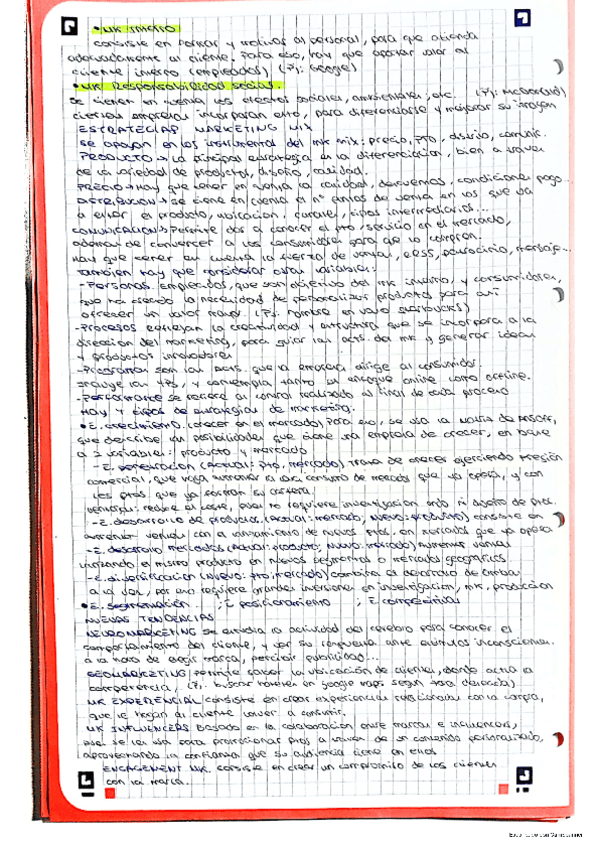 • MK INTERNO
consiste en formar y motivar al personal, para que atienda
adecuadamente al cliente. Para eso, hay que aportar valor al
cliente interno (empleados) (Pj: Google)
• MK Responsabilidad social.
Se tienen en cuenta los efectos sociales, ambientales, etc. (Pj: McDonald)
ciertas empresas incorporan esto, para diferenciarse y mejorar su imagen
ESTRATEGIAS MARKETING MIX
se apoyan en los instrumentos del mk mix: precio, pto, distrib, comunic.
PRODUCTO → la principal estrategia es la diferenciación, bien a través
de la variedad de productos, diseño, calidad.
PRECIO → hay que tener en cuenta la calidad, descuentos, condiciones pago...
DISTRIBUCIÓN → se tiene en cuenta el nº puntos de venta en los que va
a estar el producto, ubicación, canales, tipos intermediarios...
COMUNICACIÓN → Permite dar a conocer el pto/servicio en el mercado,
además de convencer a los consumidores para que lo compren.
Hay que tener en cuenta la fuerza de ventas, RRSS, patrocinio, mensaje...
También hay que considerar otras variables:
- Personas. Empleados, que son objetivo del mk interno, y consumidores,
que ha creado la necesidad de personalizar productos para así
ofrecer un valor mayor. (Pj: nombre en vaso Starbucks)
- Procesos reflejan la creatividad y estructura que se incorpora a la
dirección del marketing, para guiar las acts. del mk y generar ideas
y productos innovadores
- Programas son las acts. que la empresa dirige al consumidor.
Incluye las 4Ps, y contempla tanto el enfoque online como offline.
- Performance se refiere al control realizado al final de cada proceso
Hay 4 tipos de estrategias de marketing.
• E. crecimiento. (crecer en el mercado) Para ello, se usa la Matriz de Ansoff,
que describe las posibilidades que tiene una empresa de crecer, en base
a 2 variables: producto y mercado
- E. penetración (actual: pto, mercado) Trata de crecer ejerciendo presión
comercial, que haga aumentar la consumo de mercado que ya opera, y con
los ptos. que ya forman su cartera
ventaja: reduce el coste, pues no requiere investigación mdo ni diseño de ptos.
- E. desarrollo de productos. (actual: mercado, nuevo: producto) consiste en
aumentar ventas con el lanzamiento de nuevos ptos. en mercados que ya opera
- E. desarrollo mercados (actual: producto, nuevo: mercado) aumenta ventas
utilizando el mismo producto en nuevos segmentos o mercados geográficos
- E. diversificación (nuevo: pto, mercado) combina el desarrollo de ambas
a la vez, por eso requiere grandes inversiones en investigación, mk, producción
• E. segmentación ; E posicionamiento ; E competitivas
NUEVAS TENDENCIAS
NEUROMARKETING se estudia la actividad del cerebro para conocer el
comportamiento del cliente, y ver su respuesta ante estímulos inconscientes.
a la hora de elegir marca, percibir publicidad...
GEOMARKETING permite saber la ubicación de clientes, donde actúa la
competencia, (Pj: buscar hoteles en google maps según dirección)
MK EXPERIENCIAL consiste en crear experiencias relacionadas con la compra,
que le hagan al cliente volver a consumir.
MK INFLUENCERS basado en la colaboración entre marcas e influencers,
pues se les usa para promocionar ptos a través de un contenido personalizado,
aprovechando la confianza que su audiencia tiene en ellos
ENGAGEMENT MK. consiste en crear un compromiso de los clientes
con la marca.